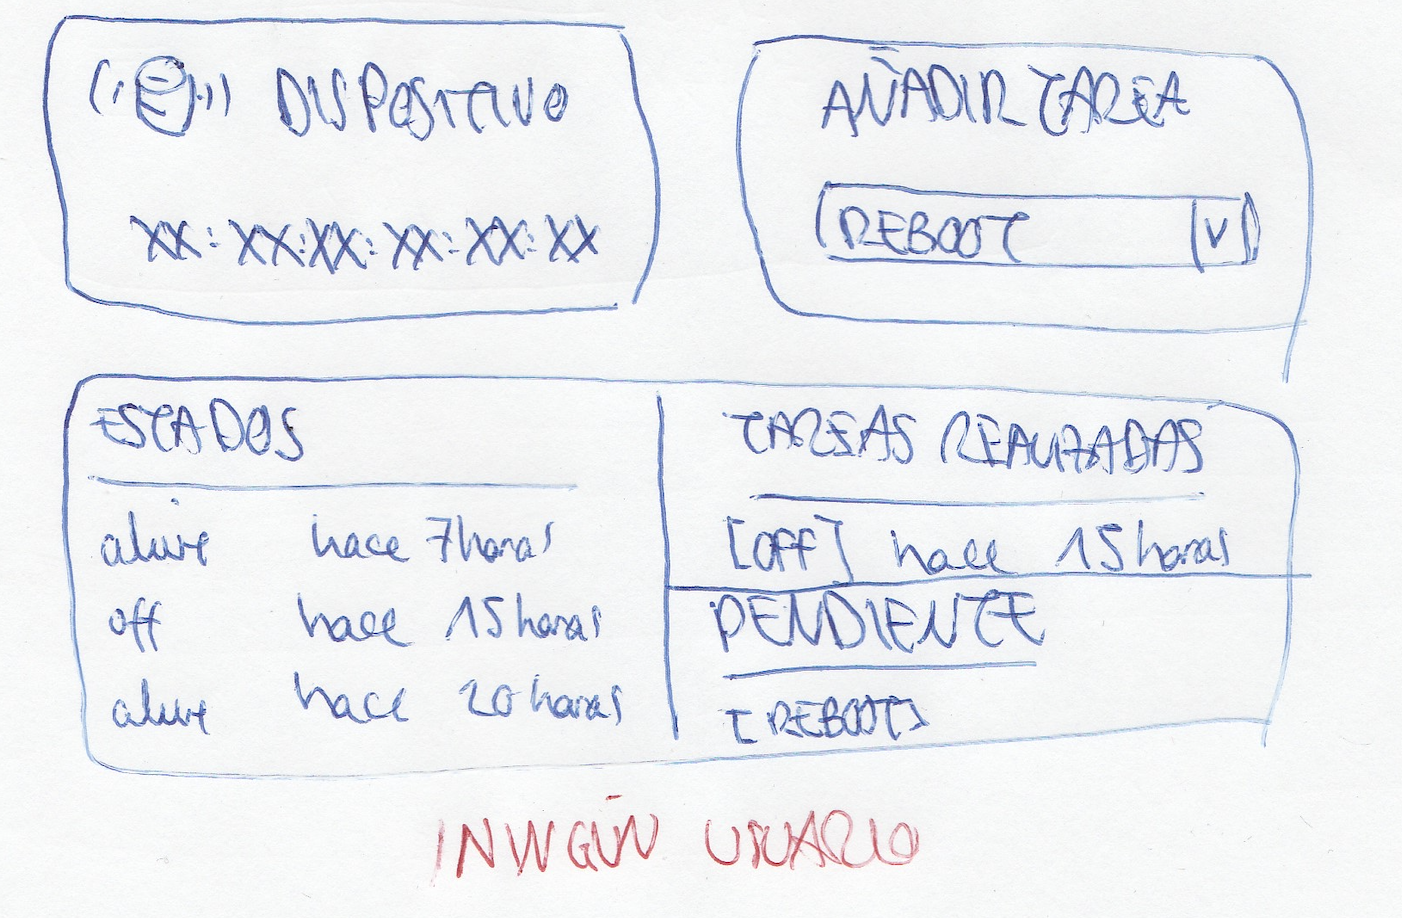 DISPOSITIVO
XX:XX:XX:XX:XX:XX
AÑADIR TAREA
REBOOT V
ESTADOS
alive hace 7 horas
off hace 15 horas
alive hace 20 horas
TAREAS REALIZADAS
[OFF] hace 15 horas
PENDIENTE
[REBOOT]
NINGÚN USUARIO